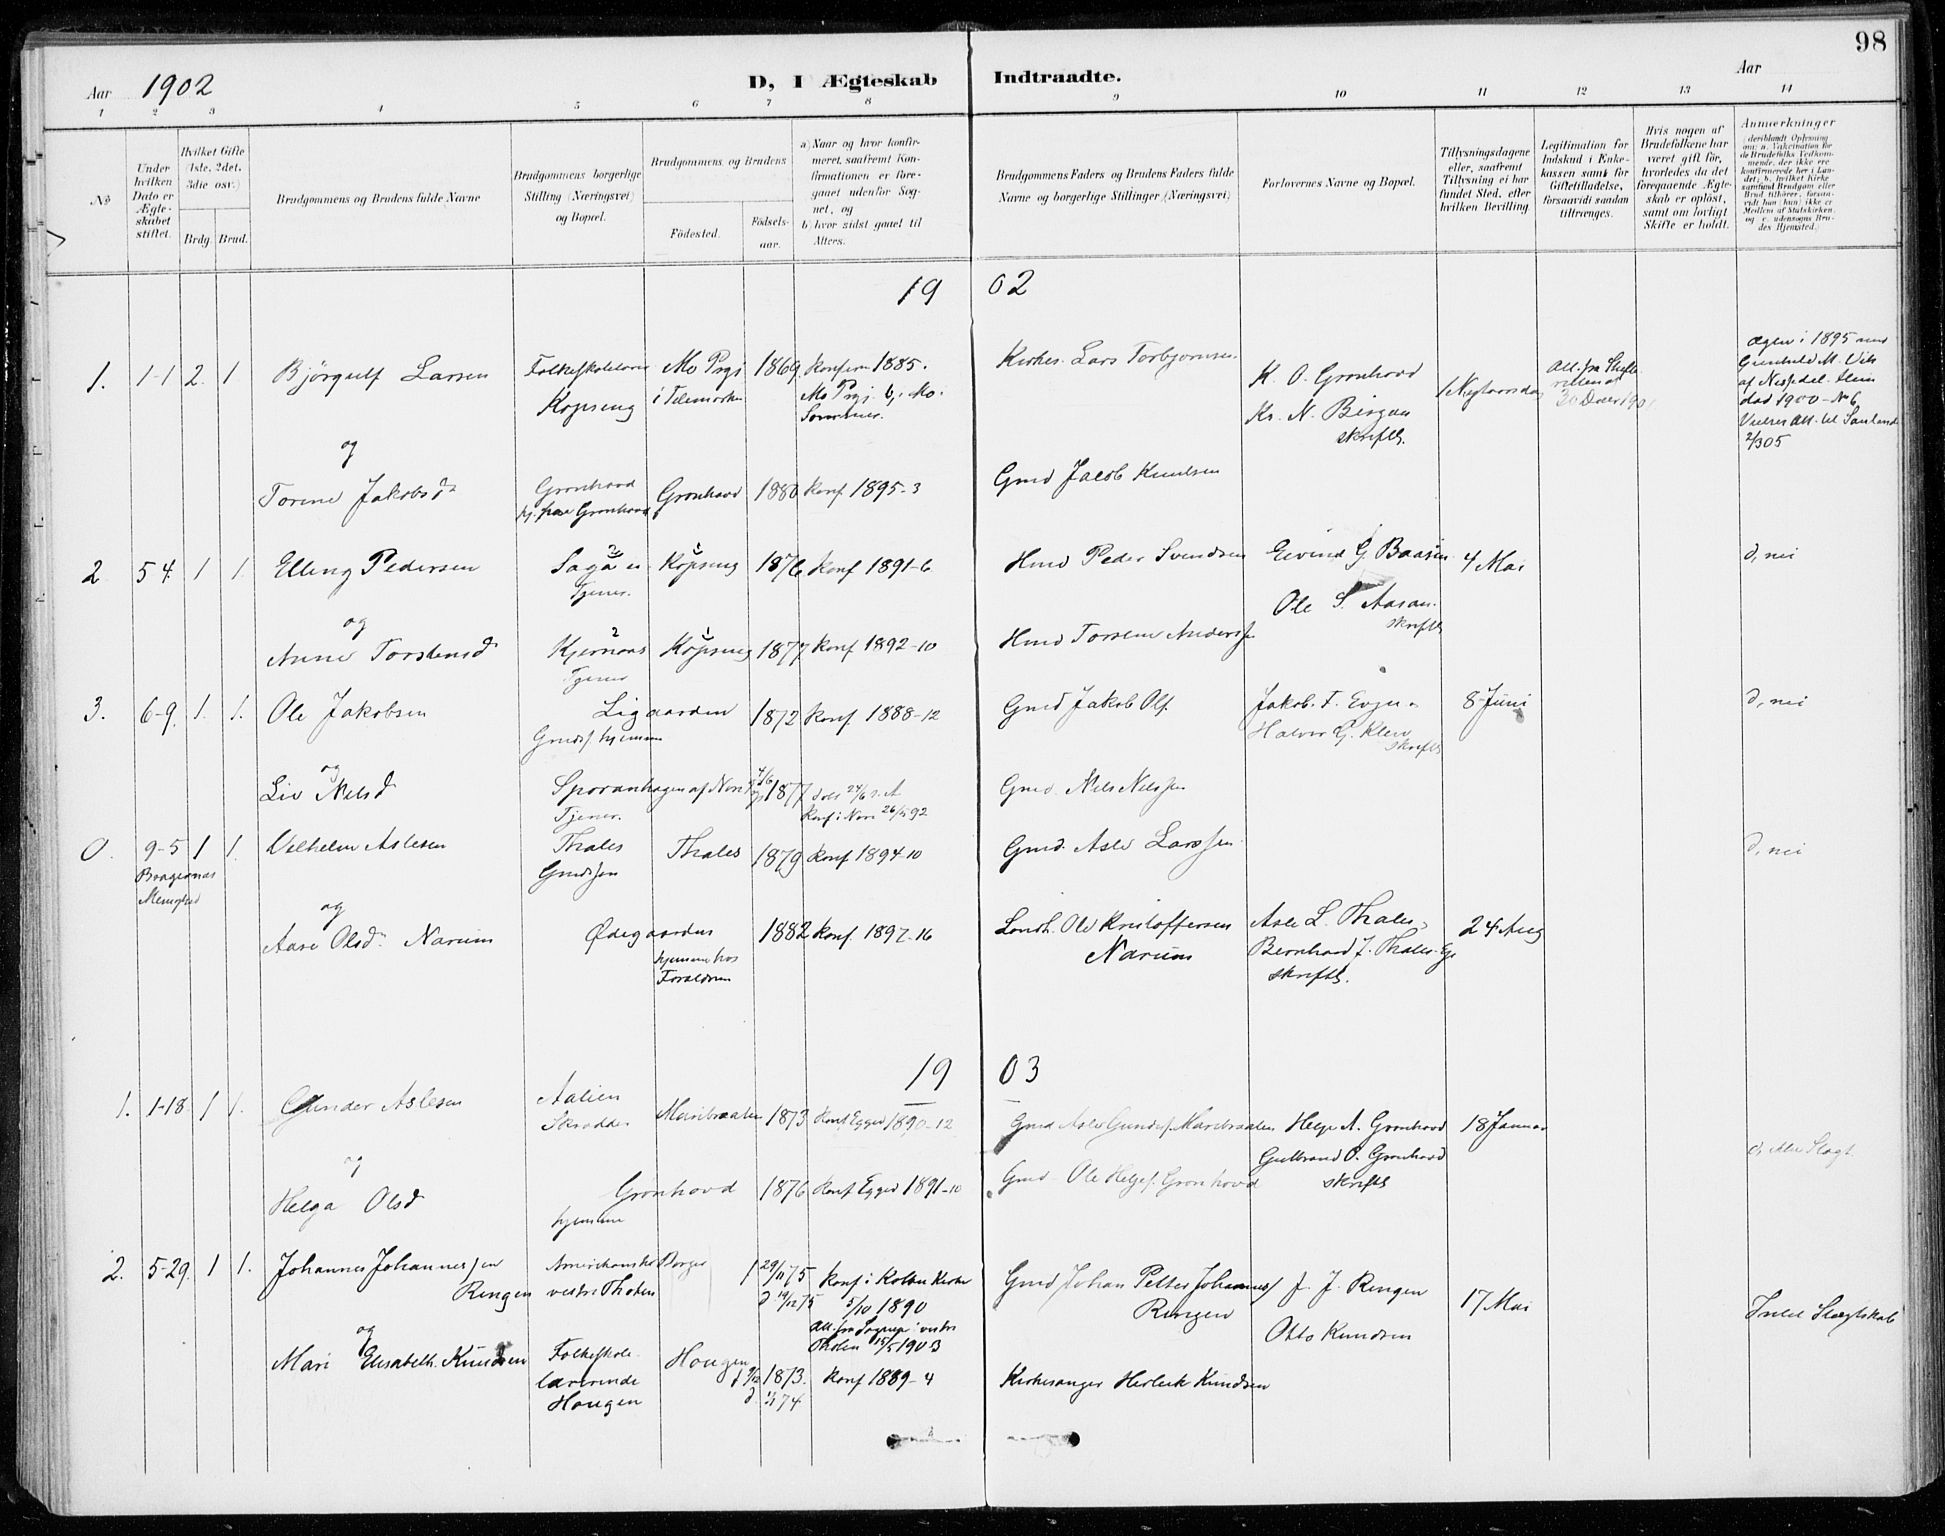 98
Aar 1902
D, I Ægteskab Indtraadte.
Aar
1 2 3 4 5 6 7 8 9 10 11 12 13 14
No
Under hvilken Dato er Ægteskabet stiftet.
Hvilket Gifte (1ste, 2det, 3die osv.)
Brdg. Brud.
Brudgommens og Brudens fulde Navne
Brudgommens borgerlige Stilling (Næringsvei) og Bopæl.
Brudgommens og Brudens
Fødested.
Fødselsaar.
a) Naar og hvor konfirmeret, saafremt Konfirmationen er foregaaet udenfor Sognet, og
b) hvor sidst gaaet til Alters.
Brudgommens Faders og Brudens Faders fulde Navne og borgerlige Stillinger (Næringsvei)
Forlovernes Navne og Bopæl.
Tillysningsdagene eller, saafremt Tillysning ei har fundet Sted, efter hvilken Bevilling
Legitimation for Indskud i Enkekassen samt for Giftetilladelse, forsaavidt saadan tiltrænges.
Hvis nogen af Brudefolkene har været gift før, hvorledes da det foregaaende Ægteskab er opløst, samt om lovligt Skifte er holdt.
Anmærkninger
(deriblandt Oplysning om: a. Vakcination for de Brudefolks Vedkommende, der ikke ere konfirmerede her i Landet; b. hvilket Kirkesamfund Brudgom eller Brud tilhører, forsaavidt han (hun) ikke er Medlem af Statskirken, og c. udensogns Brudes Hjemsted.)
19 02
1. 1-1 2. 1 Bjørgulf Larsen
Kopseng
Mo Prgj i Telemarken 1869 Konfirm 1885.
Mo Prgj. b, Mo.
Kirkes. Lars Torbjørnsen
K. O. Grønhovd
skriftl.
1 Nytaarsdag
30 Decbr 1901
1895
1900 - No 6
2/305
og
Torine Jakobsdr Grønhovd Grønhovd 1880 Konf 1895-3 Gmd Jacob Knudsen
2 5 4. 1 1. Elling Pedersen
Tjener. Kopseng 1876 Konf 1891-6 Hmd Peder Svendsen Eivind G. Baasen 4 Mai d, nei
Ole S. Aasan.
skriftl
og
Anne Torstensd Kopseng 1877 Konf 1892-10 Hmd Torsten Anderssen
Tjener
3. 6-9. 1. 1. Ole Jakobsen Ligaarden 1872 Konf. 1888-12 Gmd Jakob Ols. Jakob. T. Evju 8 Juni d, nei
Gmds. hjemme Halvor G. Kleiv
skriftl
og
Liv Nielsd 1877 Gmd. Nils Nilssen
Tjener. Konf i Nori 26/5 92
0. 9-5 1 1. Vilhelm Aslesen Thales Thales 1879 Konf 1894-10 Gmd. Asle Larssen d, nei
Bragernas Menighed Gmdssøn
og
Aase Olsdr Narum Ødegaarden 1882 Konf. 1897-16 Landh. Ole Kristoffersen Narum Asle L. Thales 24 Aug
hjemme hos Forældrene Bernhard J. Thales
skriftl.
19 03
1. 1-18 1 1. Gunder Aslesen
Skrædder Maribraaten 1873 Konf Egged 1890-12 Gmd Asle Gunders. Maribraaten Helge A. Grønhovd 18 Januar
Gulbrand O. Grønhovd
skriftl
og
Helga Olsd Grønhovd 1876 Konf Egged 1891-10 Gmd Ole Helges. Grønhovd
hjemme
2. 5-29. 1 1. Johannes Johannessen Ringen Amerikansk Borger
vestre Thoten f 29/11 75
d 19/12 75 Konf i Kolbu Kirke
5/10 1890
Att. fra Sognepr. i vestre Thoten 15/5 1903
Gmd Johan Petter Johannes/ Ringen J. J. Ringen 17 Mai
Otto Knudsen
Intet Slægtskab
og
Mari Elisabeth Knudsen Folkeskolelærerinde Hougen Hougen 1873. Konf 1889-4 Kirkesanger Herleik Knudsen